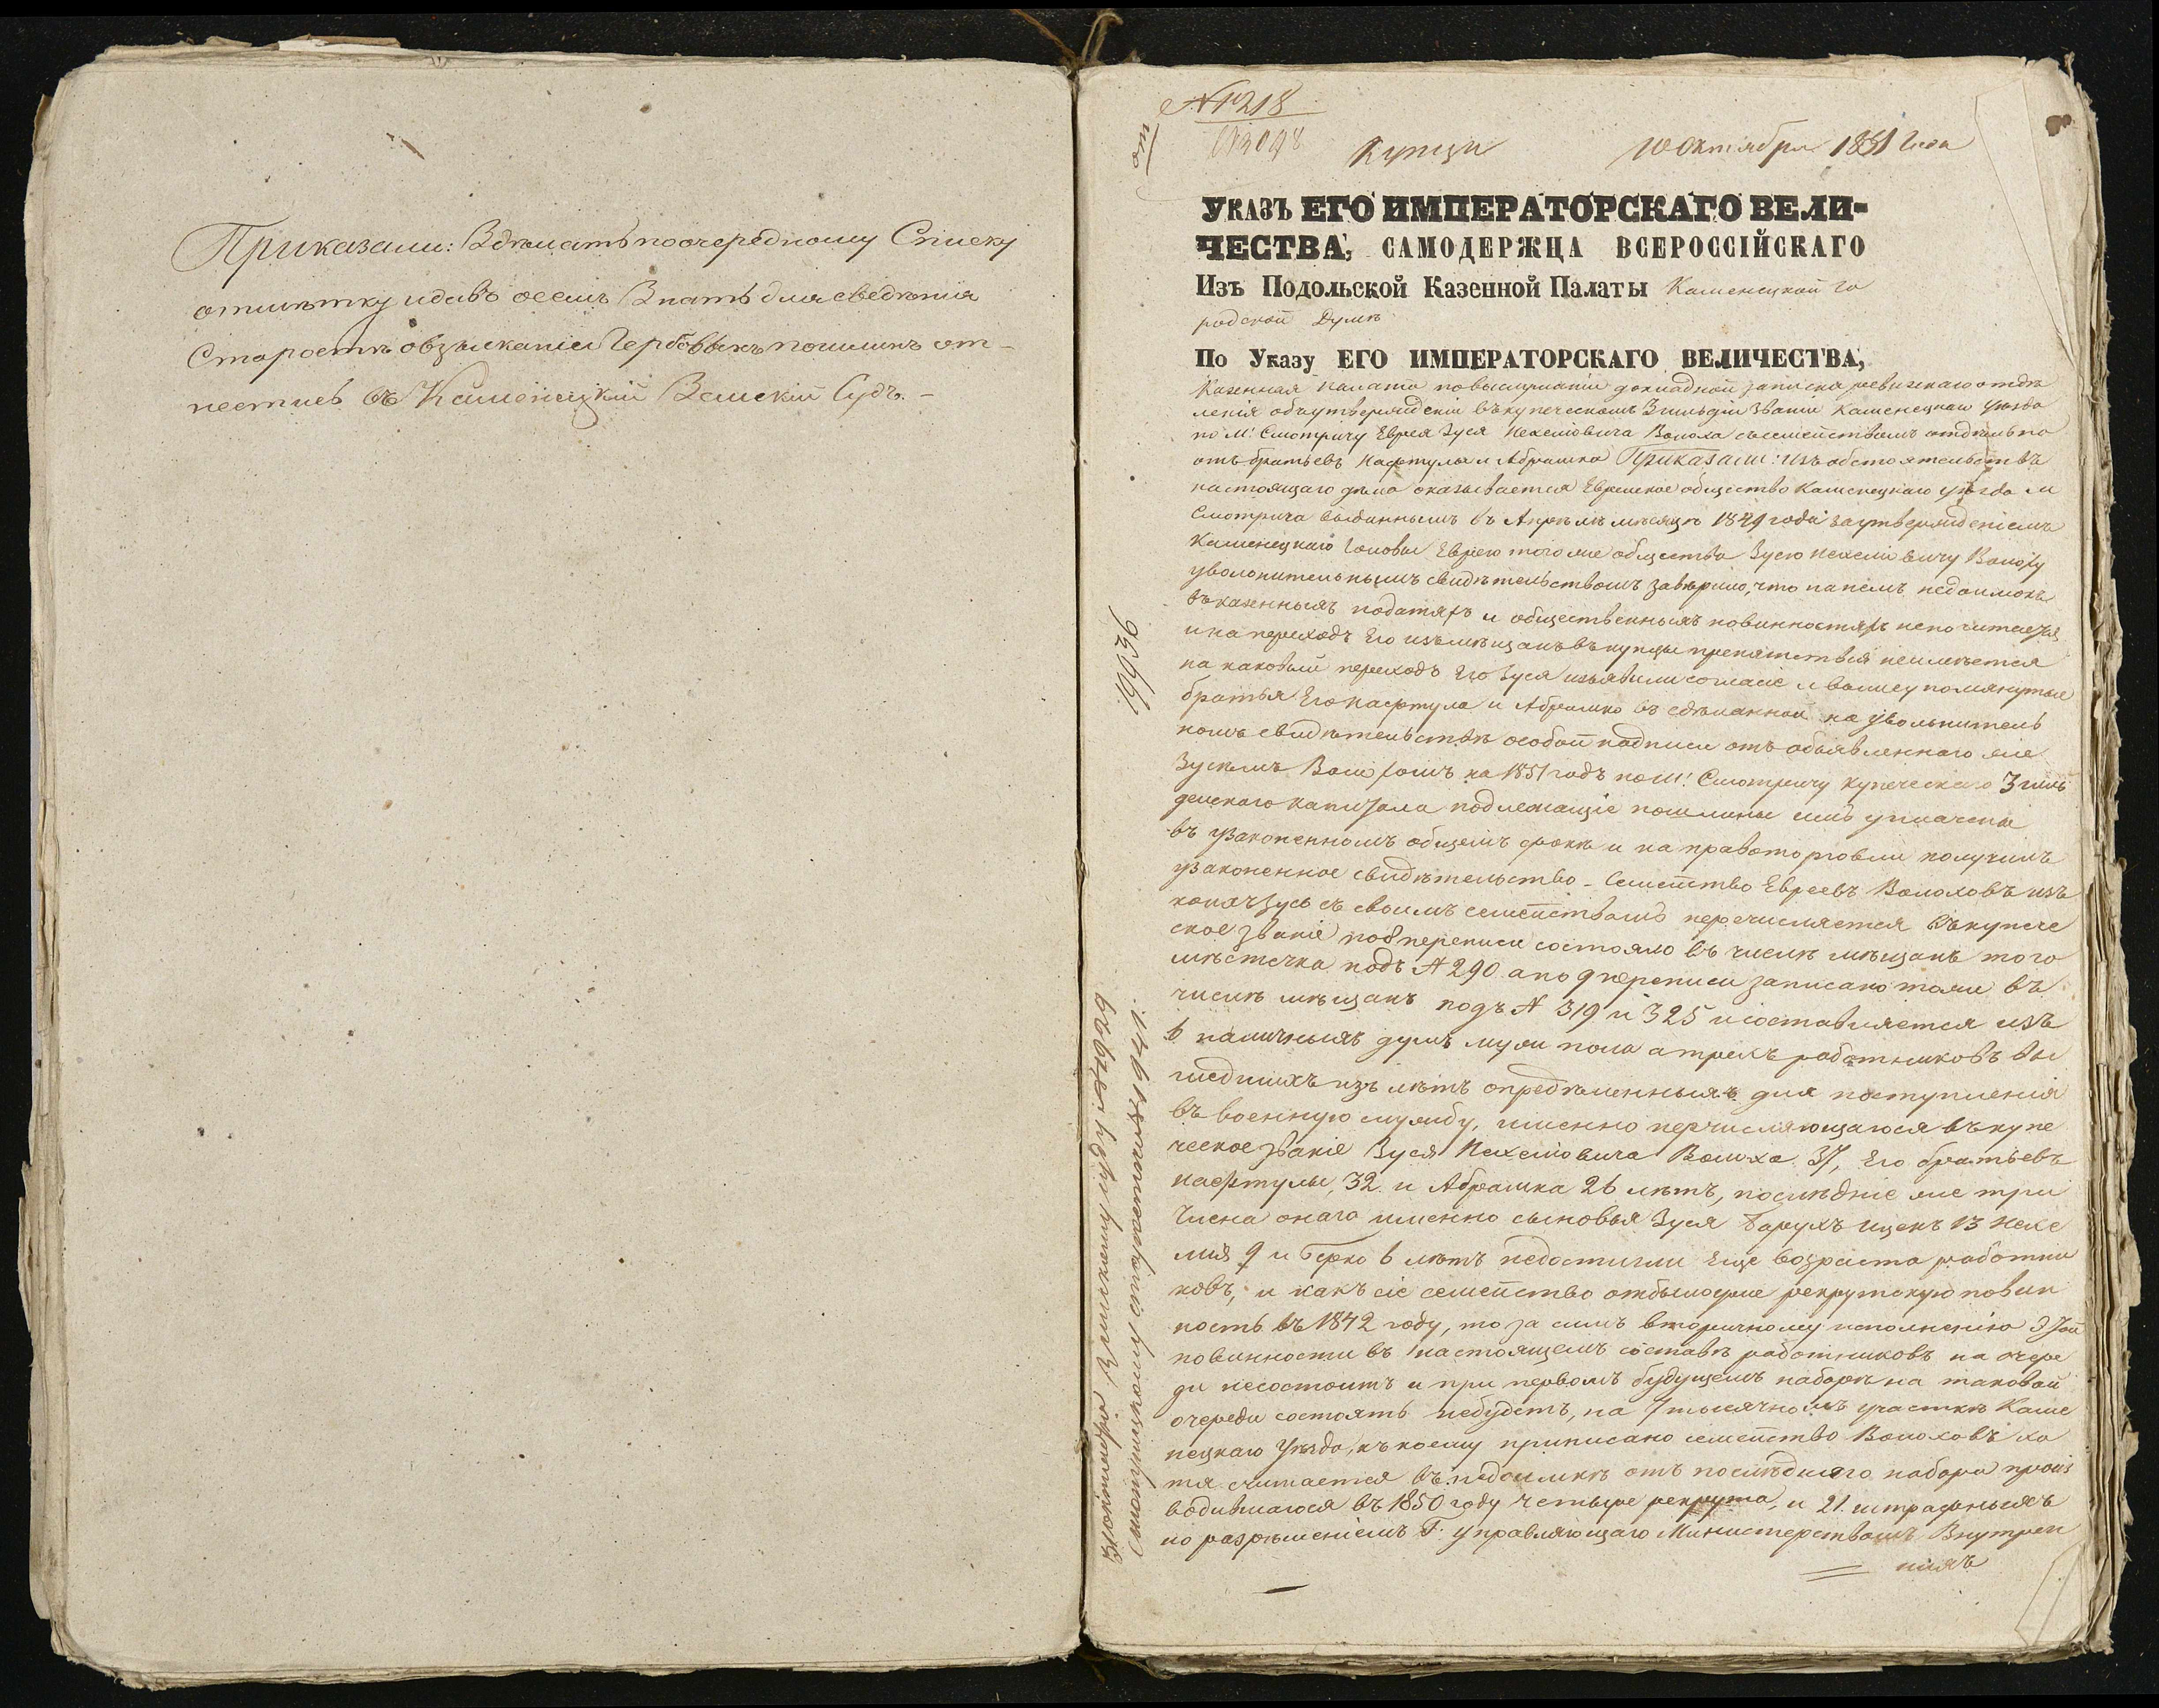 Приказали: Здѣлать по очередному Списку
отмѣтку и давъ осемъ Знать для сведѣнія
Старостѣ о взысканіи Гербовыхъ пошлинъ от-
нестись въ Каменецкій Земскій Судъ. -
№ 1218
Купци 10 Октября 1851 Года
УКАЗЪ ЕГО ИМПЕРАТОРСКАГО ВЕЛИ-
ЧЕСТВА, САМОДЕРЖЦА ВСЕРОССІЙСКАГО
Изъ Подольской Казенной Палаты Каменецкой Го
родской Думѣ
По Указу ЕГО ИМПЕРАТОРСКАГО ВЕЛИЧЕСТВА,
Казенная палата по выслушаніи докладной записки ревизскаго отдѣ
ленія объ утвержденіи въ купеческомъ 3 гильдіи званіи Каменецкаго уѣзда
по М. Смотричу Еврея Зуся Нехеміовича Волоха съ семействомъ отдѣльно
отъ братьевъ Нафтулы и Абрашка Приказали: Изъ обстоятельствъ
настоящаго дѣла оказывается Еврейское общество Каменецкаго уѣзда М
Смотрича выданнымъ въ Апрѣлѣ мѣсяцѣ 1849 года за утвержденіемъ
Каменецкаго Головы Еврею того же общества Зусю Нехеміовичу Волоху
увольнительнымъ свидѣтельствомъ завѣрило, что на немъ недоимокъ
въ казенныхъ податяхъ и общественныхъ повинностяхъ непочитается
и на переходъ Его изъ мѣщанъ въ купцы препятствія неимѣется
на каковый переходъ Его Зуся изъявили согласіе и вышеупомянутые
братья Его Нафтула и Абрашко въ сдѣланной на увольнитель
номъ свидѣтельствѣ особой надписи отъ объявленнаго же
Зусемъ Волохомъ на 1851 годъ по М. Смотричу купеческаго 3 гиль
дейскаго капитала подлежащіе пошлины имъ уплачены
въ узаконенномъ общемъ срокѣ и на право торговли получилъ
узаконенное свидѣтельство - Семейство Евреевъ Волоховъ изъ
коихъ Зусь съ своимъ семействомъ перечисляется въ купече
ское званіе по 8 переписи состояло въ числѣ мѣщанъ того
мѣстечка подъ № 290 а по 9 переписи записано тоже въ
числѣ мѣщанъ подъ № 319 и 325 и составляется изъ
6 наличныхъ душъ мужи пола а трехъ работниковъ вы
шедшихъ изъ лѣтъ опредѣленныхъ для поступленія
въ военную службу, именно перчисляющагося въ купе
ческое званіе Зуся Нехеміовича Волоха 37, Его братьевъ
Нафтулы, 32 и Абрашка 26 лѣтъ, послѣдніе же три
Члена онаго именно сыновья Зуся Барухъ Ицекъ 13 Нехе
мія 9 и Берко 6 лѣтъ недостигли Еще возраста работни
ковъ, и какъ сіе семейство отбыло уже рекрутскую повин
ность въ 1842 году, то за симъ вторичному исполненію этой
повинности въ настоящемъ составѣ работниковъ на очере
ди несостоитъ и при первомъ будущемъ наборѣ на таковой
очереди состоять небудетъ, на 7 тысячномъ участкѣ Каме
нецкаго Уѣзда, къ коему приписано семейство Волоховъ хо
тя считается въ недоимкѣ отъ послѣдняго набора произ
водившагося въ 1850 году четыре рекрута, и 21 штрафныхъ
но разрѣшеніемъ Г. Управляющаго Министерствомъ Внутрен
нихъ